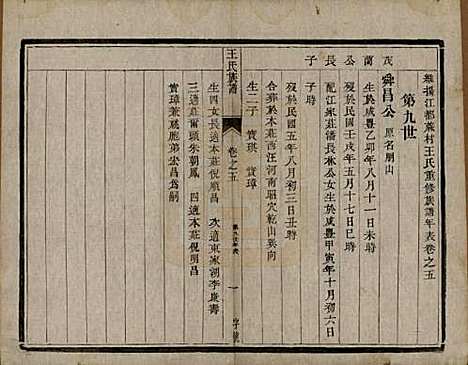 維揚江都蔴村王氏重修族譜年表卷之五
第九世
茂蘭公長子
舜昌公 原名朋山
生於咸豐乙卯年八月十一日未時
歿於民國壬戌年五月十七日巳時
配江家莊潘長林公女生於咸豐甲寅年十月初六日
子時
歿於民國五年八月初三日丑時
合葬於本莊西汪河南昭穴乾山巽向
生二子 寶琪 寶璋
王氏族譜
卷之五
一
生四女長適本莊倪鵬高 次適東家湖李慶壽
三適莊頭朱朝鳳 四適本莊倪明昌
寶璋兼祧胞弟宏昌為嗣